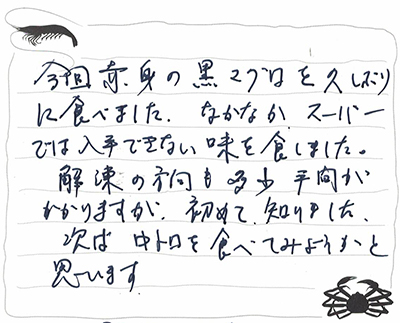 今回赤身の黒マグロを久しぶり
に食べました、なかなかスーパー
では入手できない味を食しました。
解凍の方向も多少手間が
かかりますが、初めて知りました、
次ば中トロを食べてみようかと
思います